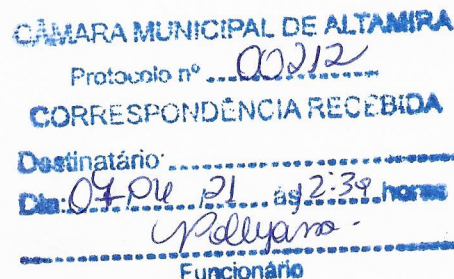 CÂMARA MUNICIPAL DE ALTAMIRA
Protocolo nº 00212
CORRESPONDÊNCIA RECEBIDA
Destinatário:
Dia: 07/04/21 às 12:39 horas
Pollyana.
Funcionário